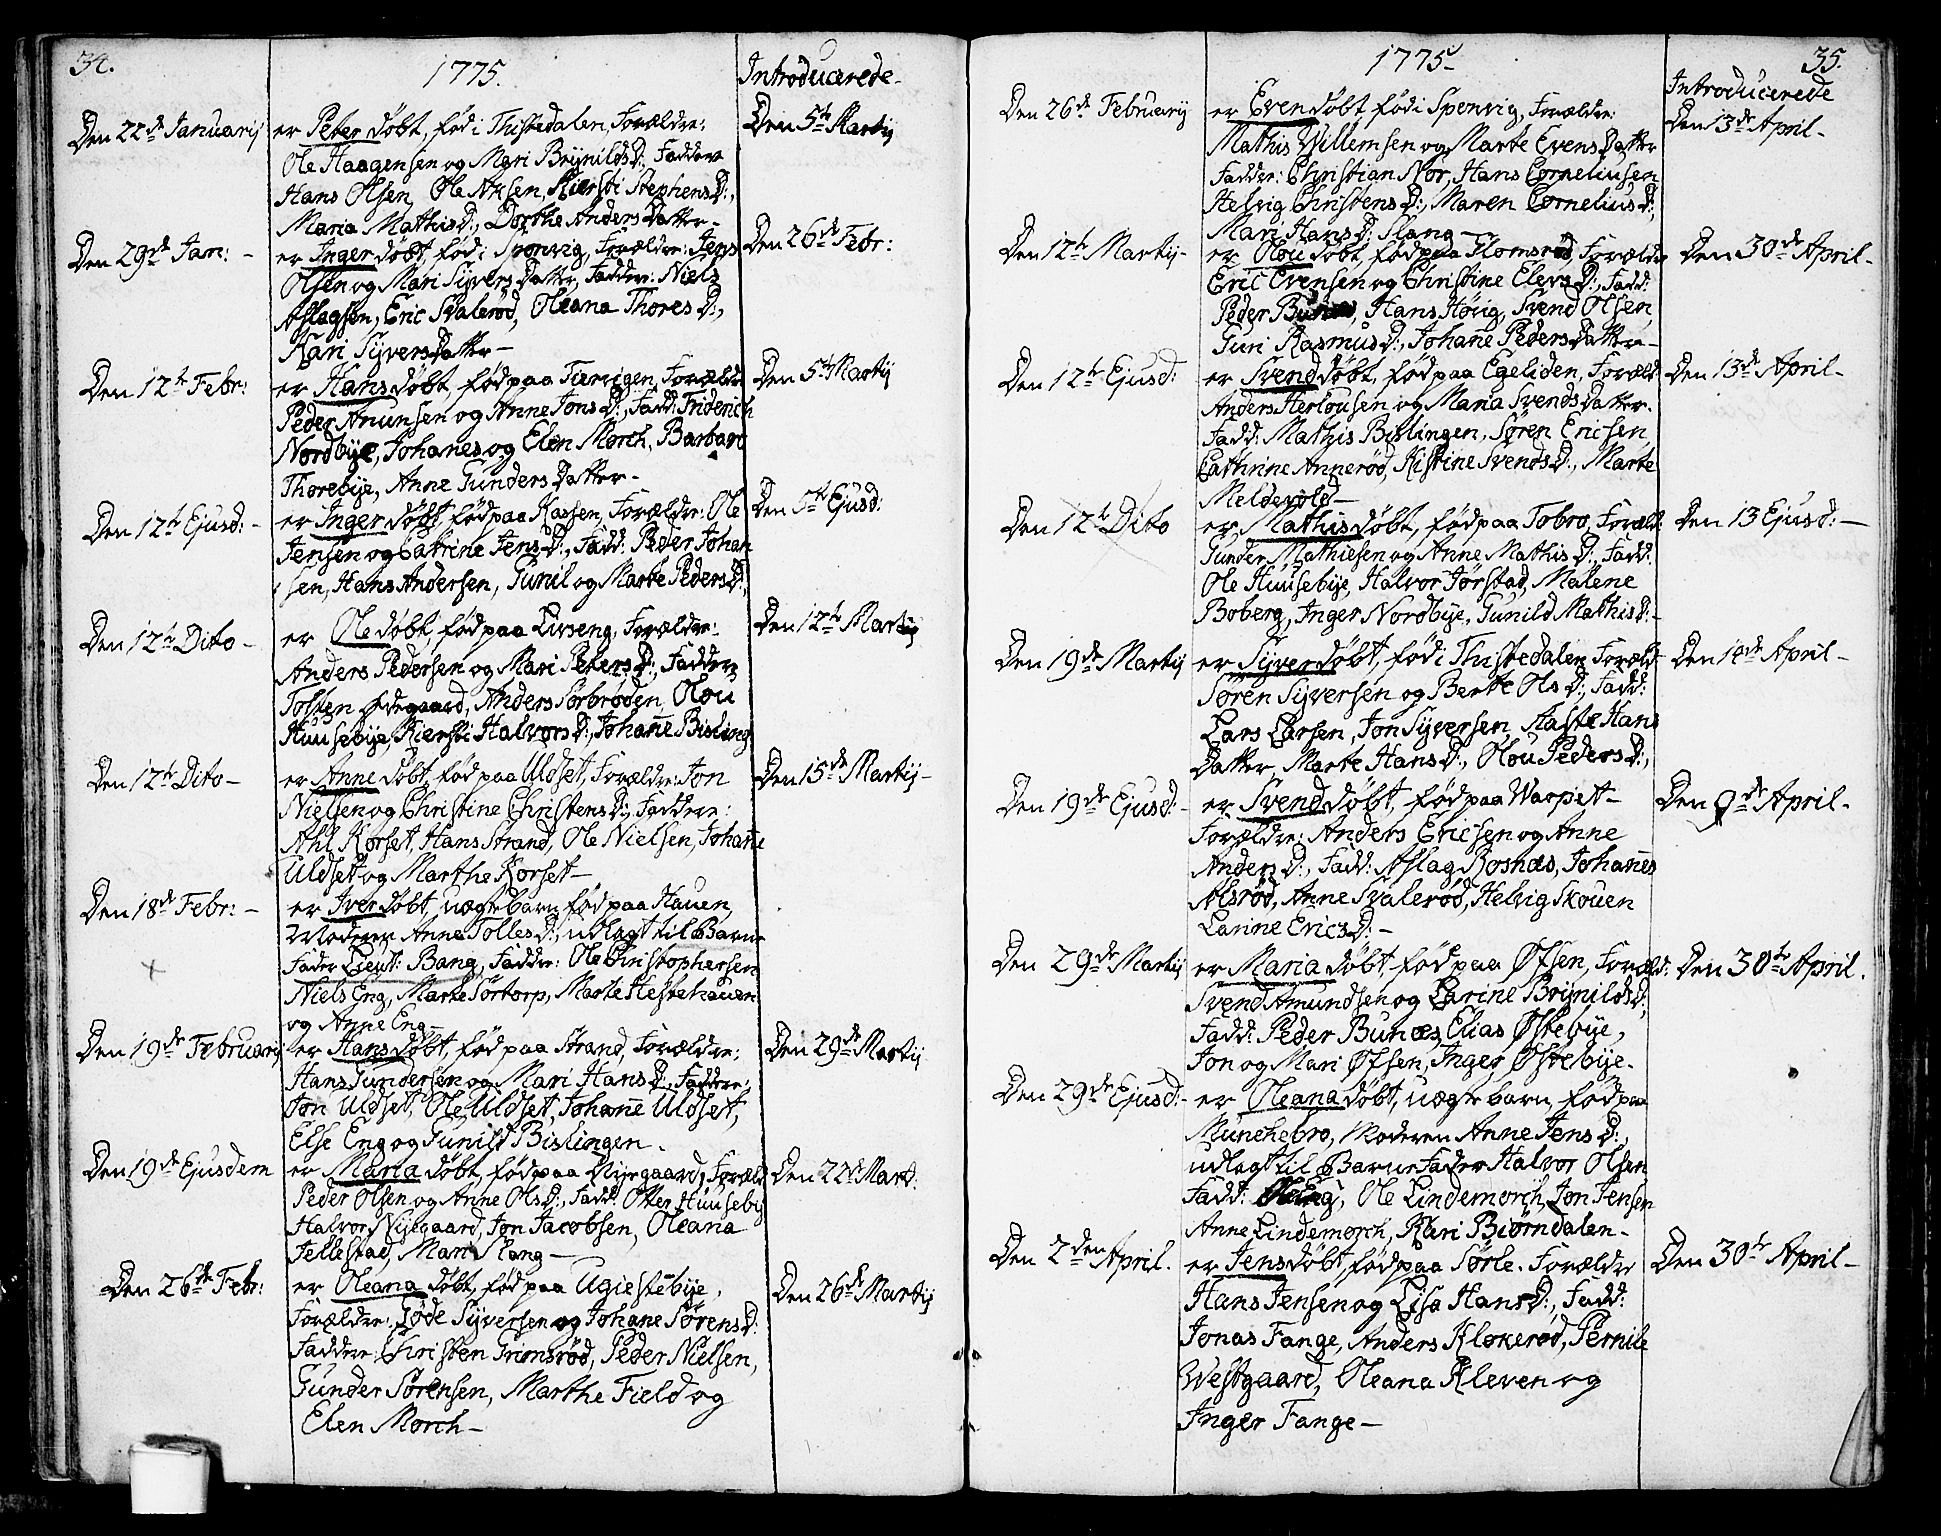 34.
1775.
Introducerede
Den 22de Januarij
er Peter döbt, föd i Thistedalen, Forældre:
Den 5te Martij
Ole Haagensen og Mari Brynilds D:, Faddere
Hans Olsen, Ole Arsen, Kiersti Stephens D:,
Maria Mathis D:, Dorthe Anders Datter-
Den 29de Jan: -
er Inger döbt, föd i Sponvig, Forældre: Jens
Den 26de Febr:
Olsen og Mari Syvers Datter, Faddere: Niels
Aslagsen, Eric Svalerød, Oleana Thores D:,
Kari Syvers Datter-
Den 12te Febr:
er Hans döbt, föd paa Forældre
Den 5te Martij
Peder Amunsen og Anne Jons D:, Fadd: Friderich
Nordbye, Johanes og Elen Morch, Barbara
Thorebye, Anne Gunders Datter-
Den 12te Ejusd: -
er Inger döbt, föd paa Kassen, Forældre: Ole
Den 5te Ejusd:
Jensen og Catrine Jens D:, Fadd: Peder Johan
sen, Hans Andersen, Gunil og Marte Peders D:,
Den 12te Dito -
er Ole döbt, föd paa Livseng, Forældre:
Den 12te Martij
Anders Pedersen og Mari Peters D:, Faddere
Tosten Ødegaard, Anders Sörbröden, Olou
Huusebye, Kiersti Halvors D:, Johañe Bisling
Den 12te Dito -
er Anne döbt, föd paa Uldset, Forældre: Jon
Den 15de Martij -
Nielsen og Christine Christens D:, Faddere:
Ahl Korset, Hans Strand, Ole Nielsen, Johañe
Uldset og Marthe Korset-
Den 18de Febr: -
er Iver döbt, uægte barn, föd paa Hauen,
Moderen Anne Tolles D:, udlagt til Barne
Fader Lieut: Bang, Faddere: Ole Christophersen
Niels Eng, Marte Sörtorp, Marte Hestehauen
og Anne Eng-
Den 19de Februarij
er Hans döbt, föd paa Strand, Forældre:
Den 29de Martij
Hans Gundersen og Mari Hans D:, Faddere:
Jon Uldset, Ole Uldset, Johañe Uldset,
Else Eng og Gunild Bislingen.
Den 19de Ejusdem
er Maria döbt, föd paa Nyegaard, Foræld:
Den 22de Mart:
Peder Olsen og Anne Ols D:, Fadd: Otter Huusebij
Halvor Nyegaard, Jon Jacobsen, Oleana
Tellestad, Mari Stang-
Den 26de Febr:
er Oleana döbt, föd paa Ugiestebye,
Den 26de Martij
Forældre: Göde Syversen og Johane Sörens D:
Faddere: Christen Grimsröd, Peder Nielsen,
Gunder Sörensen, Marthe Field og
Elen Morch-
35.
1775-
Introducerede
Den 26de Februarij
er Even döbt, föd i Sponvig, Forældre:
Den 13de April-
Mathis Willemsen og Marte Evens Datter
Faddere: Christian Nor, Hans Corneliusen,
Helvig Christens D:, Maren Cornelius D:,
Mari Hans D: Slang-
Den 12te Martij-
er Olou döbt, föd paa Flomsröd, Forældre
Den 30de April-
Eric Evensen og Christine Elevs D:, Fadd:
Peder Hans Høvig, Svend Olsen,
Guri Rasmus D:, Johañe Peders Datter-
Den 12te Ejusd:
er Svend döbt, föd paa Egeliden, Foræld:
Den 13de April-
Anders Herlousen og Maria Svends Datter.
Fadd: Mathis Bislingen, Sören Ericsen,
Cathrine Anneröd, Kistine Svends D:, Marte
Meldevold-
Den 12te Dito
er Mathis döbt, föd paa Tobro, Foræld:
Den 13 Ejusd: -
Gunder Mathiesen og Anne Mathis D:, Fadd:
Ole Huusebye, Halvor Jörstad, Malene
Boberg, Inger Nordbye, Gunild Mathis D:-
Den 19de Martij
er Syver döbt, föd i Thistedalen, Foræld
Den 14de April-
Sören Syversen og Berte Ols D:, Fadd:
Lars Larsen, Jon Syversen, Aaste Hans
Datter, Marte Hans D:, Olou Peders D:,
Den 19de Ejusd:-
er Svend döbt, föd paa Warpet-
Den 9de April-
Forældre: Anders Ericsen og Anne
Anders D:, Fadd: Aslag Rosnæs, Johañes
Alsröd, Anne Svaleröd, Helvig Skouen
Larine Erics D:-
Den 29de Martij
er Maria döbt, föd paa Øfsen, Foræld:
Den 30te April.
Svend Amundsen og Larine Brynilds D:,
Fadd: Peder Bunæs, Elias Østebye,
Jon og Mari Øfsen, Inger Østebye.
Den 29de Ejusd:-
er Oleana döbt, uægte barn, föd paa
Munchebro, Moderen Anne Jens D:,
udlagt til Barne Fader Halvor Olsen
Fadd: Eng, Ole Lindemorch, Jon Jensen
Anne Lindemorch, Kari Biörndalen-
Den 2den April.
er Jens döbt, föd paa Sörle. Forældre
Den 30te April-
Hans Jensen og Lisa Hans D:, Fadd:
Jonas Fange, Anders Kloxeröd, Pernile
Westgaard, Oleana Kleven og
Inger Fange-